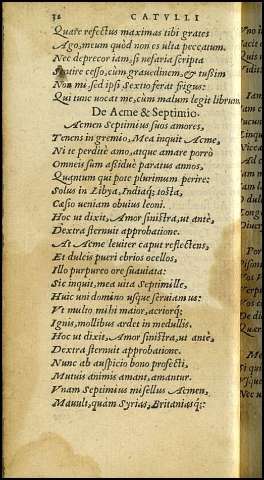 32 CATVLLI
Quare refectus maximas tibi grates
Ago, meum quòd non es ulta peccatum.
Nec deprecor iam, si nefaria scripta
cesso, cum grauedinem, & tußim
Non mi sed ipsi Sextio ferat frigus:
Qui tunc uocat me, cum malum legit librum
De Acme & Septimio.
Acmen Septimius suos amores,
Tenens in gremio, Mea inquit Acme,
Ni te perditè amo, atque amare porrò
Omneis sum aßiduè paratus annos,
Quantum qui pote plurimum perire:
Solus in Libya, Indiaq; tosta,
Cæsio ueniam obuius leoni.
Hoc ut dixit, Amor sinistra, ut antè,
Dextra sternuit approbatione.
At Acme leuiter caput reflectens,
Et dulcis pueri ebrios ocellos,
Illo purpureo ore suauiata:
Sic inquit, mea uita Septimille,
Huic uni domino usque seruiamus:
Vt multo mihi maior, acriorq;
Ignis, mollibus ardet in medullis.
Hoc ut dixit, Amor sinistra, ut antè,
Dextra sternuit approbatione.
Nunc ab auspicio bono profecti,
Mutuis animis amant, amantur.
Vnam Septimius misellus Acmen,
Mauult, quam Syrias, Britaniasq;: